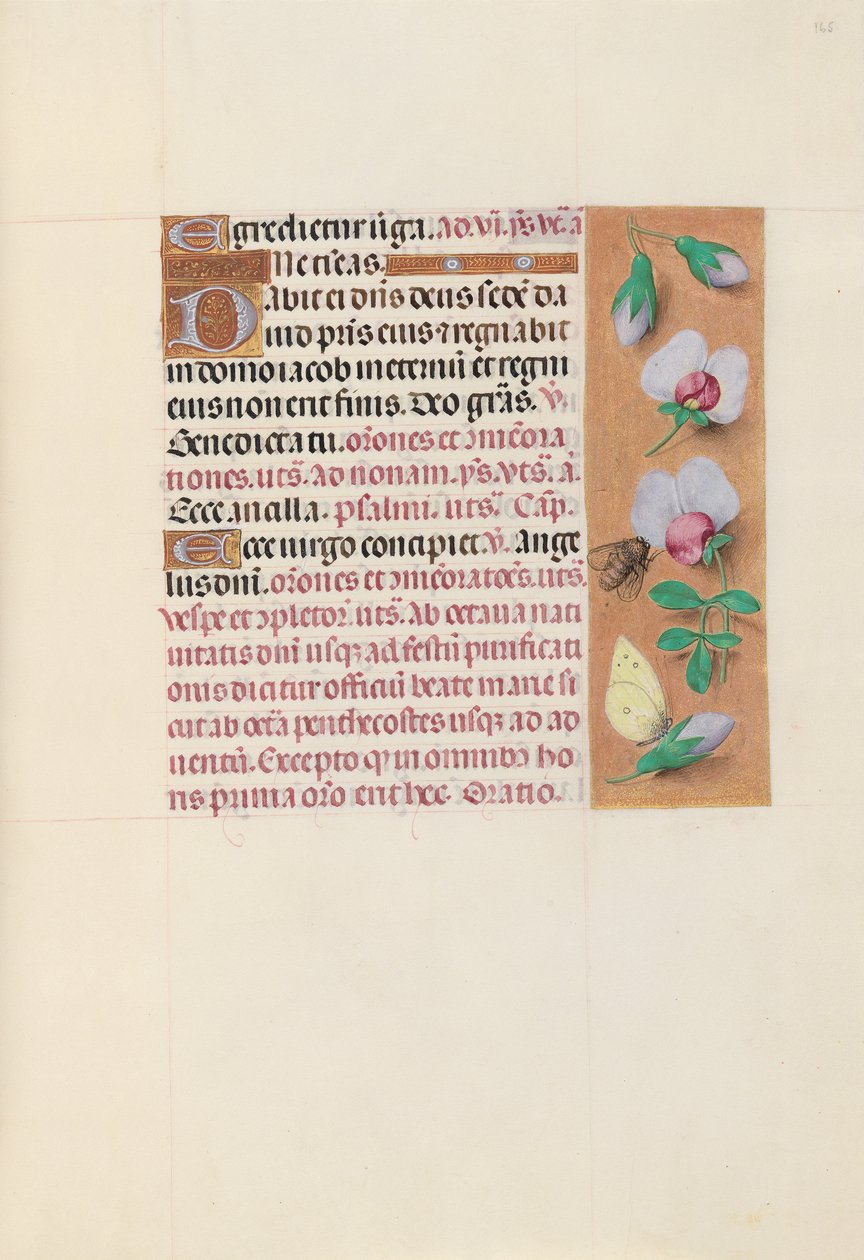 165
Egredietur uirga. ad. vi. ps. vt. ā
Ne timeas.
Dabit ei dn̄s deus sedē da
uid pr̄is eius ⁊ regnabit
in domo iacob in eternū et regni
eius non erit finis. Deo gr̄as. v̄.
Benedicta tu. or̄ones et ɔmēora
tiones. uts̄. Ad nonam. ps̄. vts̄. ā.
Ecce ancilla. psalmi. uts̄. Cap̄.
Ecce uirgo concipiet. v̄. Ange
lus dn̄i. or̄ones et ɔmēoratōes. uts̄.
vesp̄e et ɔpletor̄. uts̄. Ab octaua nati
uitatis dn̄i usqꝫ ad festū purificati
onis dicitur officiū beate marie si
cut ab octā penthecostes usqꝫ ad ad
uentū. Excepto ꝙ in omnibꝫ ho
ris prima or̄o erit hec. Oratio.